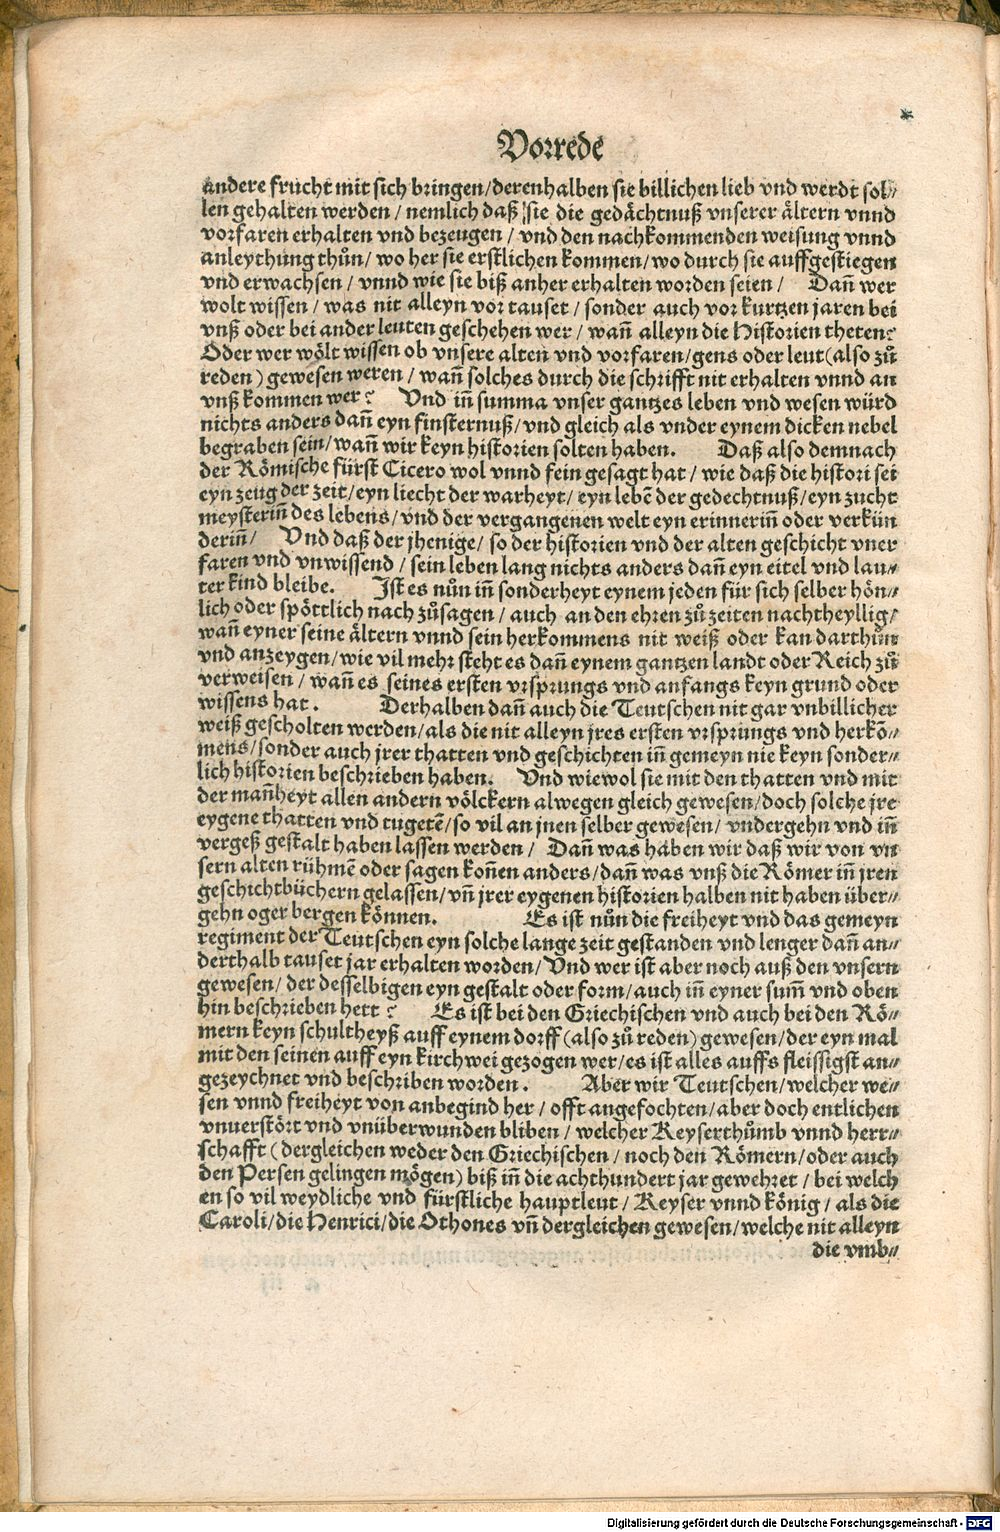 Vorrede
andere frucht mit sich bringen/derenhalben sie billichen lieb vnd werdt sol⸗
len gehalten werden / nemlich daß sie die gedächtnuß vnserer ältern vnnd
vorfaren erhalten vnd bezeugen / vnd den nachkommenden weisung vnnd
anleythung thůn/ wo her sie erstlichen kommen/wo durch sie auffgestiegen
vnd erwachsen / vnnd wie sie biß anher erhalten worden seien / Dañ wer
wolt wissen / was nit alleyn vor tauset / sonder auch vor kurtzen jaren bei
vnß oder bei ander leuten geschehen wer / wañ alleyn die Historien theten?
Oder wer wölt wissen ob vnsere alten vnd vorfaren/gens oder leut(also zů
reden) gewesen weren / wañ solches durch die schrifft nit erhalten vnnd an
vnß kommen wer? Vnd iñ summa vnser gantzes leben vnd wesen würd
nichts anders dañ eyn finsternuß/vnd gleich als vnder eynem dicken nebel
begraben sein/wañ wir keyn historien solten haben. Daß also demnach
der Römische fürst Cicero wol vnnd fein gesagt hat / wie daß die histori sei
eyn zeug der zeit/eyn liecht der warheyt/ eyn lebē der gedechtnuß/eyn zucht
meysteriñ des lebens/vnd der vergangenen welt eyn erinneriñ oder verkün
deriñ/ Vnd daß der jhenige/ so der historien vnd der alten geschicht vner
faren vnd vnwissend / sein leben lang nichts anders dañ eyn eitel vnd lau⸗
ter kind bleibe. Ist es nůn iñ sonderheyt eynem jeden für sich selber hön⸗
lich oder spöttlich nach zůsagen / auch an den ehren zů zeiten nachtheyllig/
wañ eyner seine ältern vnnd sein herkommens nit weiß oder kan darthůn
vnd anzeygen/wie vil mehr steht es dañ eynem gantzen landt oder Reich zů
verweisen / wañ es seines ersten vrsprungs vnd anfangs keyn grund oder
wissens hat. Derhalben dañ auch die Teutschen nit gar vnbillicher
weiß gescholten werden/als die nit alleyn jres ersten vrsprungs vnd herkō⸗
mens/sonder auch jrer thatten vnd geschichten iñ gemeyn nie keyn sonder⸗
lich historien beschrieben haben. Vnd wiewol sie mit den thatten vnd mit
der mañheyt allen andern völckern alwegen gleich gewesen/doch solche jre
eygene thatten vnd tugetē/so vil an jnen selber gewesen/ vndergehn vnd iñ
vergeß gestalt haben lassen werden / Dañ was haben wir daß wir von vn
sern alten rühmē oder sagen koñen anders/dañ was vnß die Römer iñ jren
geschichtbüchern gelassen/vñ jrer eygenen historien halben nit haben über⸗
gehn oger bergen können. Es ist nůn die freiheyt vnd das gemeyn
regiment der Teutschen eyn solche lange zeit gestanden vnd lenger dañ an⸗
derthalb tauset jar erhalten worden/Vnd wer ist aber noch auß den vnsern
gewesen/ der desselbigen eyn gestalt oder form/auch iñ eyner sum̃ vnd oben
hin beschrieben hett? Es ist bei den Griechischen vnd auch bei den Rö⸗
mern keyn schultheyß auff eynem dorff (also zů reden) gewesen/der eyn mal
mit den seinen auff eyn kirchwei gezogen wer/es ist alles auffs fleissigst an⸗
gezeychnet vnd beschriben worden. Aber wir Teutschen/welcher we⸗
sen vnnd freiheyt von anbegind her / offt angefochten/aber doch entlichen
vnuerstört vnd vnüberwunden bliben / welcher Keyserthůmb vnnd herr⸗
schafft (dergleichen weder den Griechischen / noch den Römern/oder auch
den Persen gelingen mögen) biß iñ die achthundert jar gewehret / bei welch
en so vil weydliche vnd fürstliche hauptleut / Keyser vnnd könig / als die
Caroli/die Henrici/die Othones vñ dergleichen gewesen/welche nit alleyn
die vmb⸗
Digitalisierung gefördert durch die Deutsche Forschungsgemeinschaft - DFG